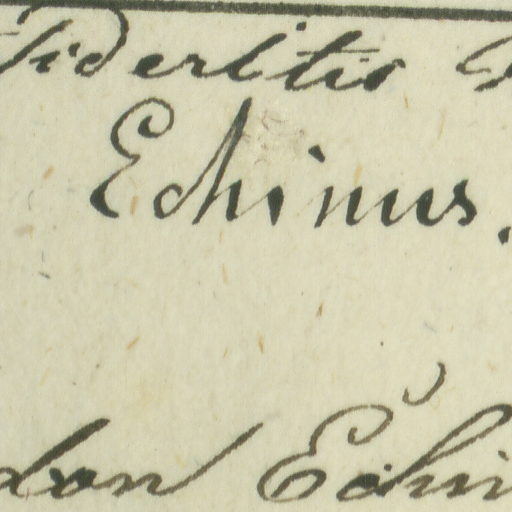 Sideritis
Echinus.
don Echin